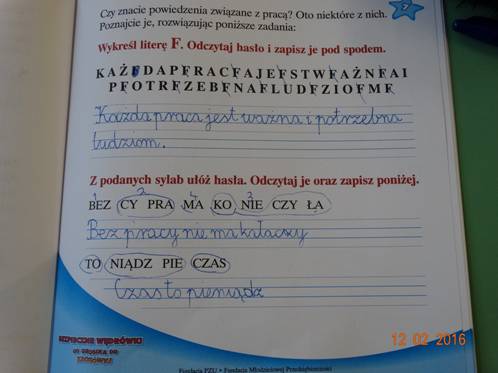 Czy znacie powiedzenia związane z pracą? Oto niektóre z nich.
Poznajcie je, rozwiązując poniższe zadania:
7
Wykreśl literę F. Odczytaj hasło i zapisz je pod spodem.
KAŻFDAPFRACFAJEFSTWFAŻNFAI
PFOTRFZEBFNAFLUDFZIOFMF
Każda praca jest ważna i potrzebna
ludziom.
Z podanych sylab ułóż hasła. Odczytaj je oraz zapisz poniżej.
BEZ CY PRA MA KO NIE CZY ŁA
Bez pracy nie ma kołaczy
TO NIĄDZ PIE CZAS
Czas to pieniądz
BEZPIECZNE WĘDRÓWKI
OD GROSIKA DO
ZŁOTÓWKI
12 02 2016
Fundacja PZU • Fundacja Młodzieżowej Przedsiębiorczości